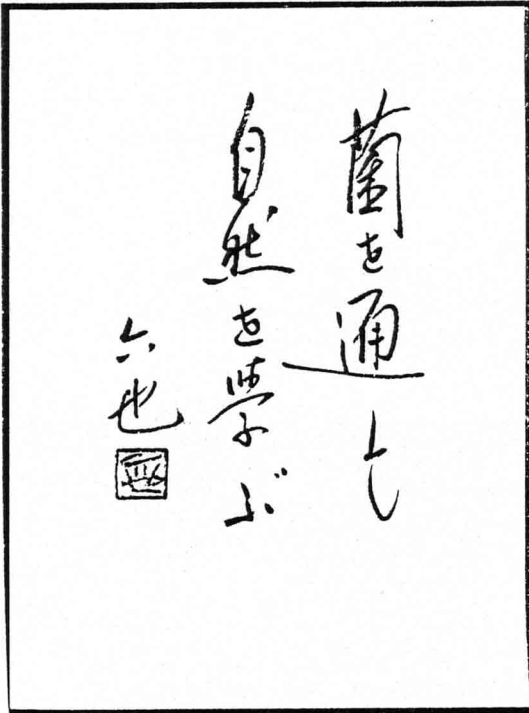 菌を通して
自然を学ぶ
六也